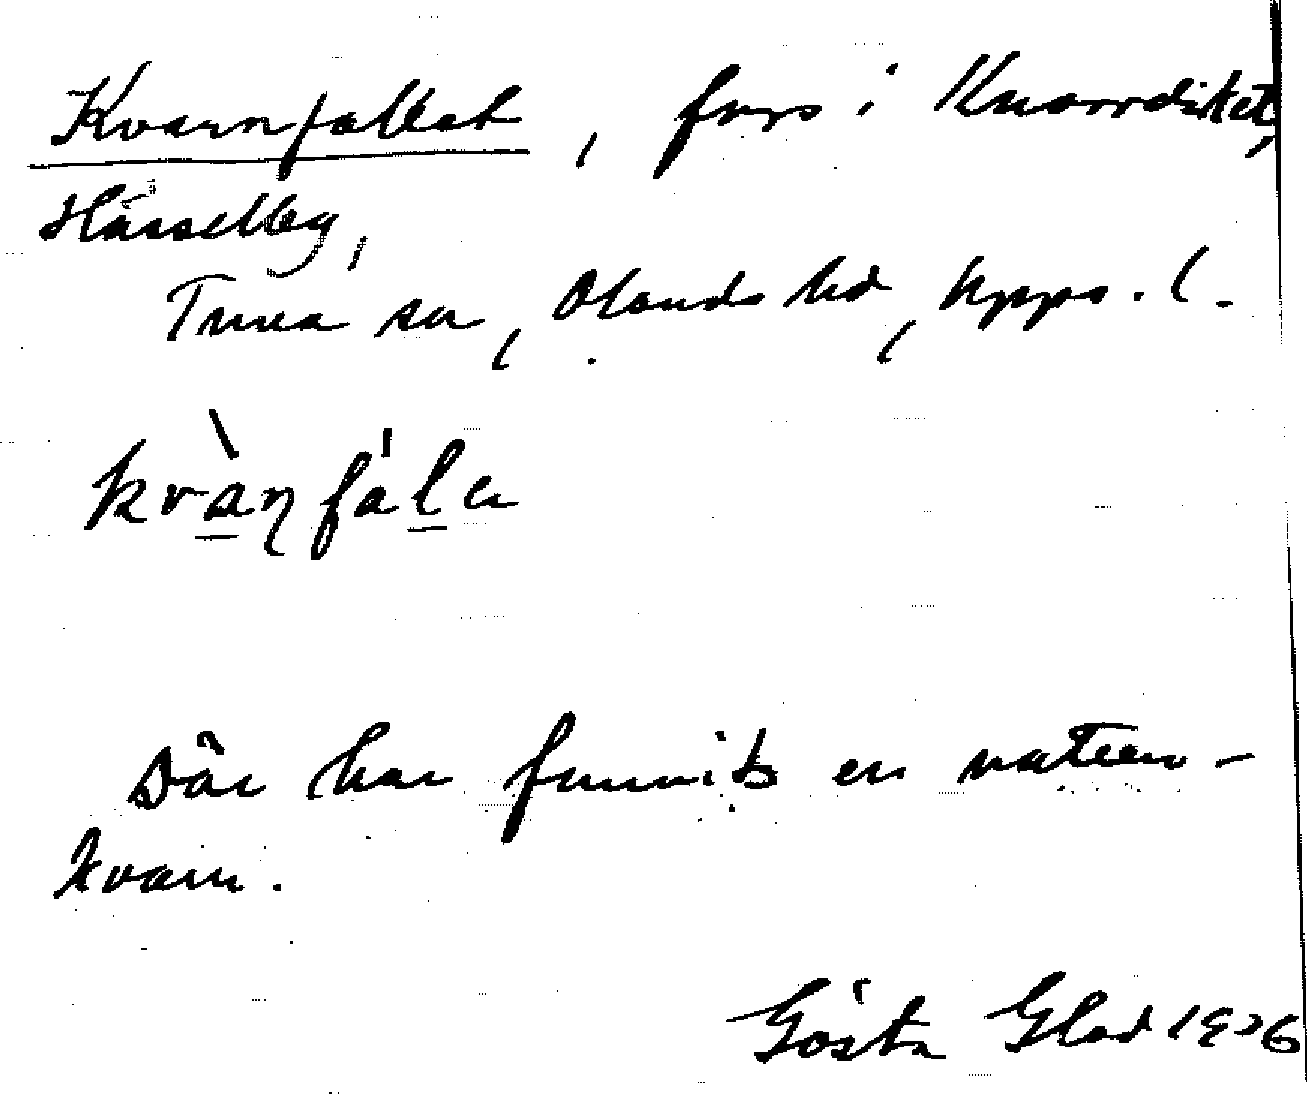 Kvarnfallet, fors i Knorrdiket,
Hässelby,
Tuna sn, Olands hd, Upps. l.
kvànfálɑ
Där har funnits en vatten-
kvarn.
Gösta Glad 1926